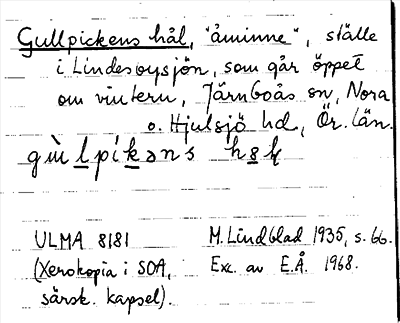 Gullpickens hål, "åminne", ställe
i Lindesoysjön, som går öppet
om vintern, Järnboås sn, Nora
o. Hjulsjö hd, Ör. län.
gùlpíkəns
ULMA 8181 M. Lindblad 1935, s. 66.
(Xerokopia i SOA, Exc. av E.Å. 1968.
särsk. kapsel).